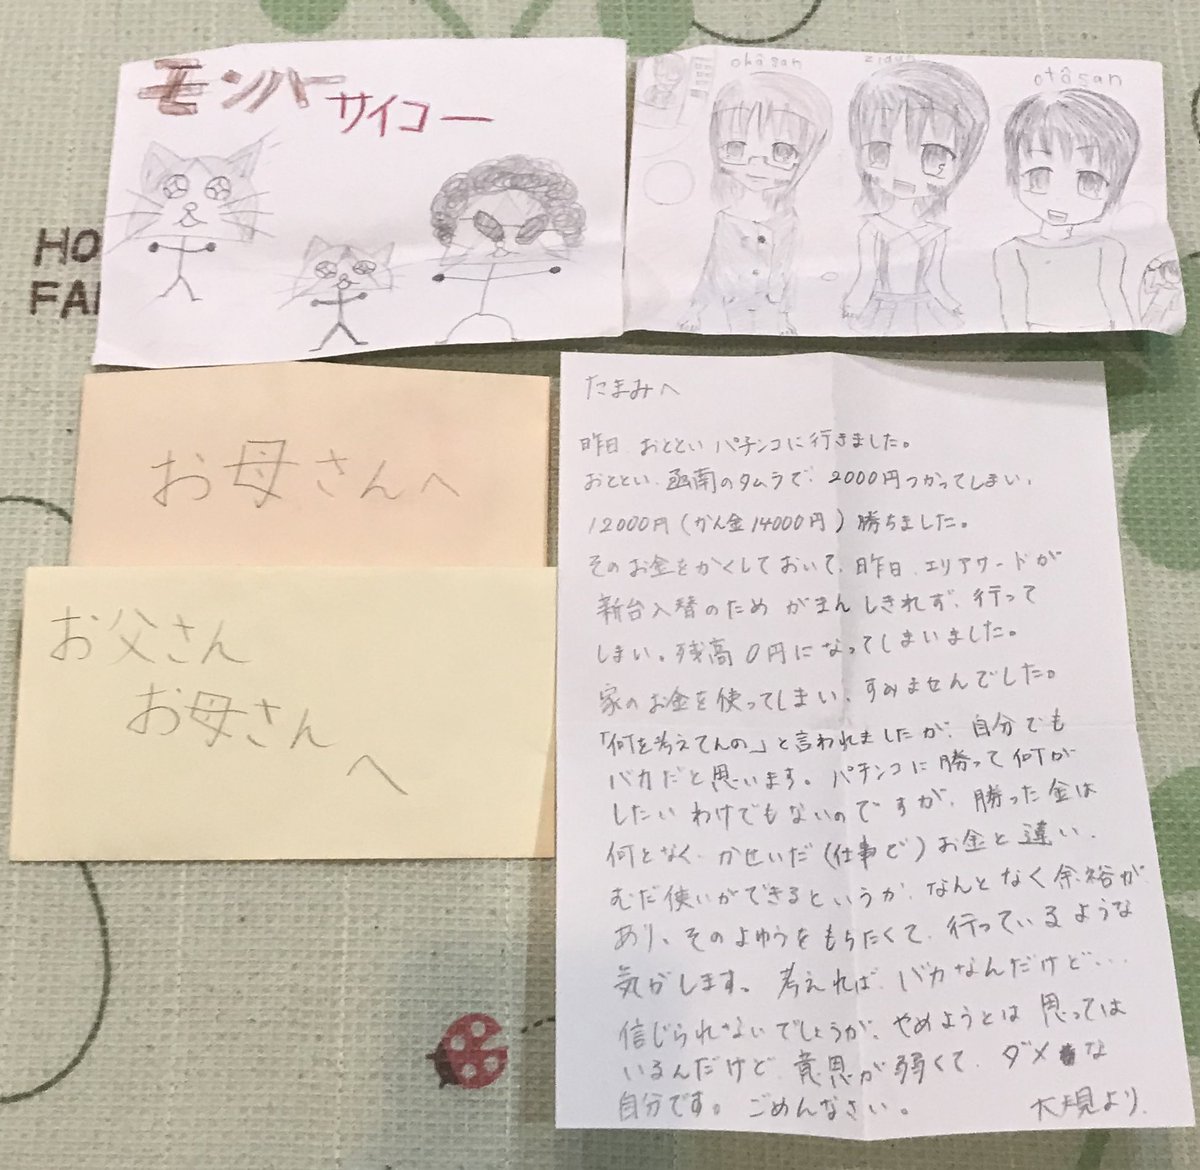 モンハー
サイコー
okâsan
otôsan
HO
FA
お母さんへ
お父さん
お母さん
へ
たまみへ
昨日、おととい パチンコに行きました。
おととい、函南のタムラで、2000円つかってしまい、
12000円(かん金14000円)勝ちました。
そのお金をかくしておいて、昨日、エリアワードが
新台入替のため がまんしきれず、行って
しまい。残高0円になってしまいました。
家のお金を使ってしまい、すみませんでした。
「何を考えてんの」と言われましたが、自分でも
バカだと思います。パチンコに勝って何が
したいわけでもないのですが、勝った金は
何となく、かせいだ(仕事で)お金と違い、
むだ使いができるというか、なんとなく余裕が
あり、そのよゆうをもちたくて、行っているような
気がします。考えれば、バカなんだけど…
信じられないでしょうが、やめようとは思っては
いるんだけど、意思が弱くて、ダメな
自分です。ごめんなさい。
より.